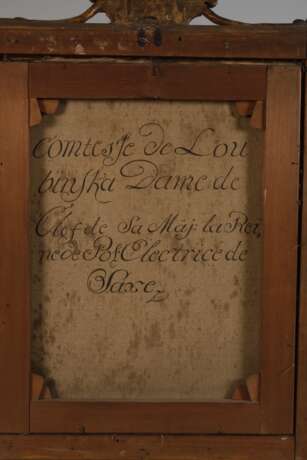 Comtesse de Lou
binska Dame de
Clef de Sa Maj: la Rei,
ne de Pol Electrice de
Saxe